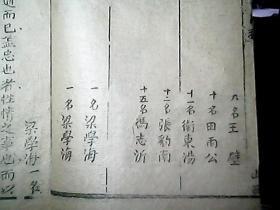 九名王壁
十名田雨公
十一名衛東湯
十二名張豹南
十五名馮志沂
一名梁學海
一名梁學海
梁學海一名
近而已蓋忠也者性情之事也而以